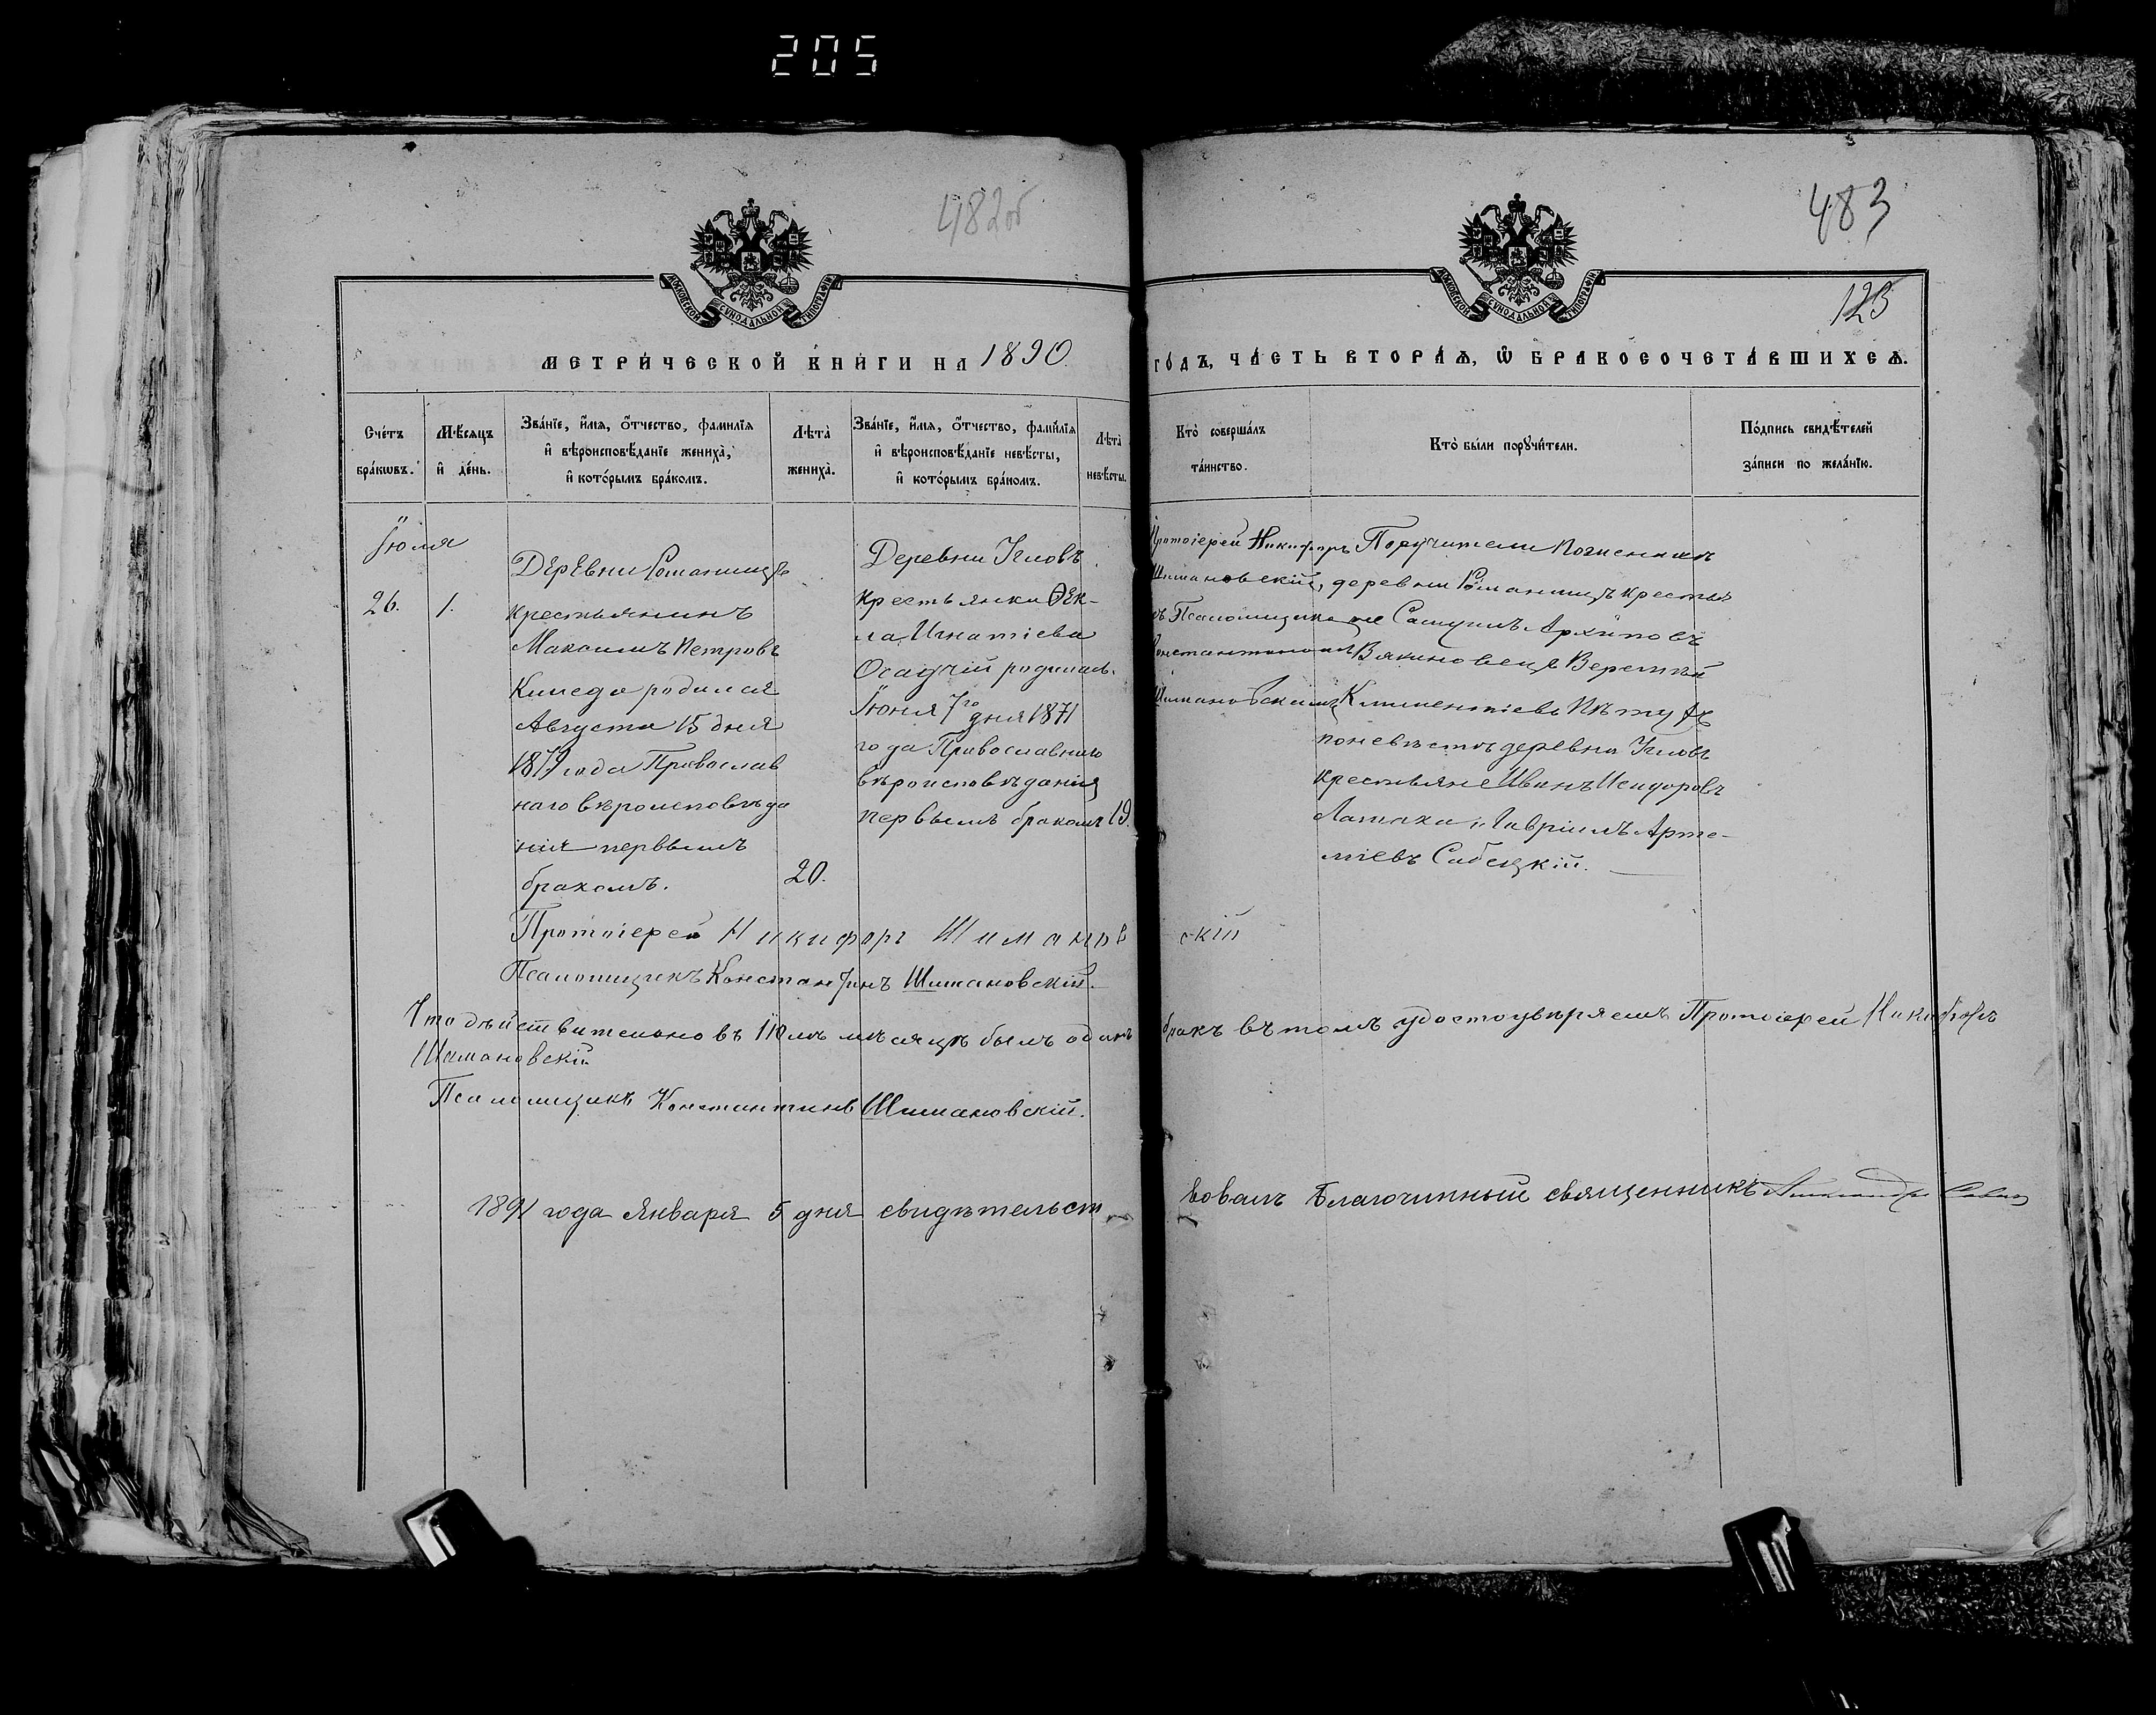 205
482об
483
123
МОСКОВСКОЙ СѴНОДАЛЬНОЙ ТИПОГРАФІИ
МОСКОВСКОЙ СѴНОДАЛЬНОЙ ТИПОГРАФІИ
МЕТРИ́ЧЕСКОЙ КНИ́ГИ НА 1890.
ГО́ДЪ, ЧА́СТЬ ВТОРА́Ѧ, Ѡ҆ БРАКОСОЧЕТА́ВШИХСѦ.
Сче́тъ
бра́кѡвъ.
Мѣ́сѧцъ
и҆ де́нь.
Зва́нїе, и҆́мѧ, ѻ҆́тчество, фами́лїѧ
и҆ вѣроисповѣ́данїе жениха̀,
и҆ кото́рымъ бра́комъ.
Лѣта̀
жениха̀.
Зва́нїе, и҆́мѧ, ѻ҆́тчество, фами́лїѧ
и҆ вѣроисповѣ́данїе невѣ́сты,
и҆ кото́рымъ бра́комъ.
Лѣта̀
невѣ́сты.
Кто̀ соверша́лъ
та́инство.
Кто̀ бы́ли порꙋчи́тели.
По́дпись свидѣ́телей
за́писи по жела́нїю.
Іюля
26.
1.
Деревни Романищъ
крестьянинъ
Максимъ Петровъ
родился
Августа 15 дня
года Православ
наго вѣроисповѣда
нія первымъ
бракомъ.
20.
Деревни Угловъ
крестьянка Ѳек-
ла Игнатіева
Осадчій родилась
Іюня 7го дня 1871
года Православнаго
вѣроисповѣданія
первымъ бракомъ
19.
Протоіерей Никифоръ
Шимановскій,
съ Псаломщикомъ
Константиномъ
Шимановскимъ
Поручители по женихѣ
деревни Романищъ крестья
не Самуилъ Архиповъ
Климентіевъ
по невѣстѣ деревни Угловъ
крестьяне Иванъ Исидоровъ
и Гавріилъ Арте-
міевъ Сабецкій.
Протоіерей Никифоръ Шимановскій
Псаломщикъ Константинъ Шимановскій.
Что дѣйствительно въ Іюлѣ мѣсяцѣ былъ одинъ бракъ въ томъ удостовѣряемъ Протоіерей Никифоръ
Шимановскій
Псаломщикъ Константинъ Шимановскій.
1891 года Января 5 дня свидѣтельствовалъ Благочинный священникъ